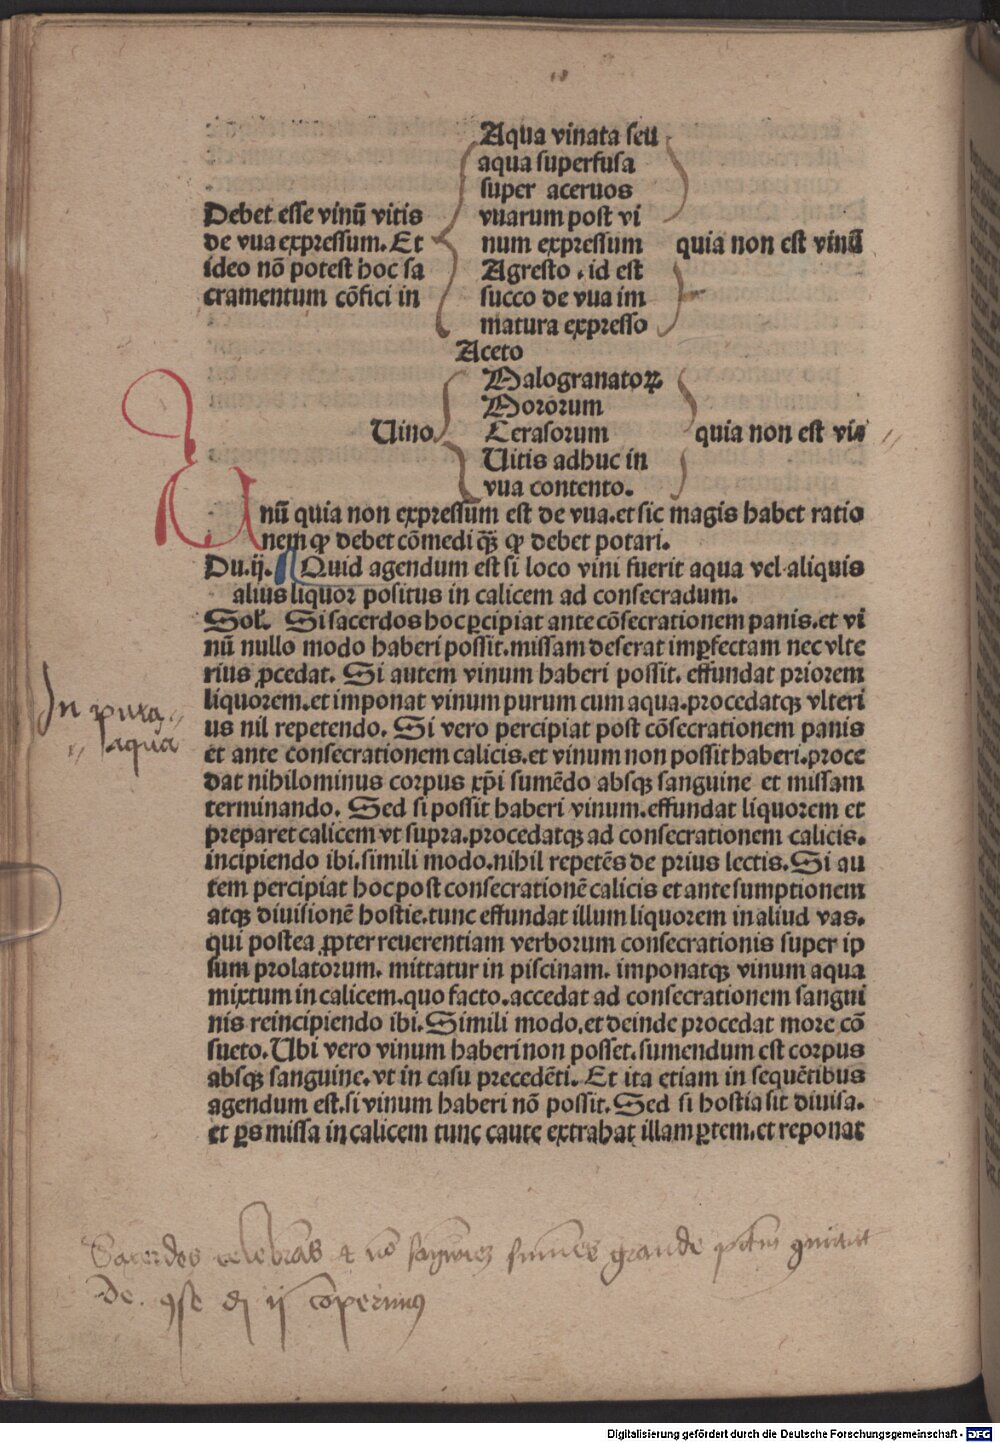 Aqua vinata seu
aqua superfusa
super aceruos
Debet esse vinū vitis vuarum post vi
de vua expressum. Et num expressum quia non est vinū
ideo nō potest hoc sa Agresto . id est
cramentum cōfici in succo de vua im
matura expresso
Aceto
Malogranatoꝝ
Mororum
Uino Cerasorum quia non est vis
Uitis adhuc in
vua contento.
nū quia non expressum est de vua. et sic magis habet ratio
nem ꝙ debet cōmedi q̄ꝫ ꝙ debet potari.
Du.ij. Quid agendum est si loco vini fuerit aqua vel aliquis
alius liquor positus in calicem ad consecradum.
Sol. Si sacerdos hoc ꝑcipiat ante cōsecrationem panis. et vi
nū nullo modo haberi possit. missam deserat imꝑfectam nec vlte
rius ꝓcedat. Si autem vinum haberi possit. effundat priorem
liquorem. et imponat vinum purum cum aqua. procedatqꝫ vlteri
us nil repetendo. Si vero percipiat post cōsecrationem panis
et ante consecrationem calicis. et vinum non possit haberi. proce
dat nihilominus corpus xp̄i sumēdo absqꝫ sanguine et missam
terminando. Sed si possit haberi vinum. effundat liquorem et
preparet calicem vt supra. procedatqꝫ ad consecrationem calicis.
incipiendo ibi. simili modo. nihil repetēs de prius lectis. Si au
tem percipiat hoc post consecrationē calicis et ante sumptionem
atqꝫ diuisionē hostie. tunc effundat illum liquorem in aliud vas.
qui postea ꝓpter reuerentiam verborum consecrationis super ip
sum prolatorum. mittatur in piscinam. imponatqꝫ vinum aqua
mixtum in calicem. quo facto. accedat ad consecrationem sangui
nis reincipiendo ibi. Simili modo. et deinde procedat more cō
sueto. Ubi vero vinum haberi non posset. sumendum est corpus
absqꝫ sanguine. vt in casu precedēti. Et ita etiam in sequētibus
agendum est. si vinum haberi nō possit. Sed si hostia sit diuisa.
et ꝑs missa in calicem tunc caute extrahat illam ꝑtem. et reponat
In pura
aqua
Sacerdos celebrās et nō sumēs grande
De. ꝯse di ij cōperimus
Digitalisierung gefördert durch die Deutsche Forschungsgemeinschaft - DFG